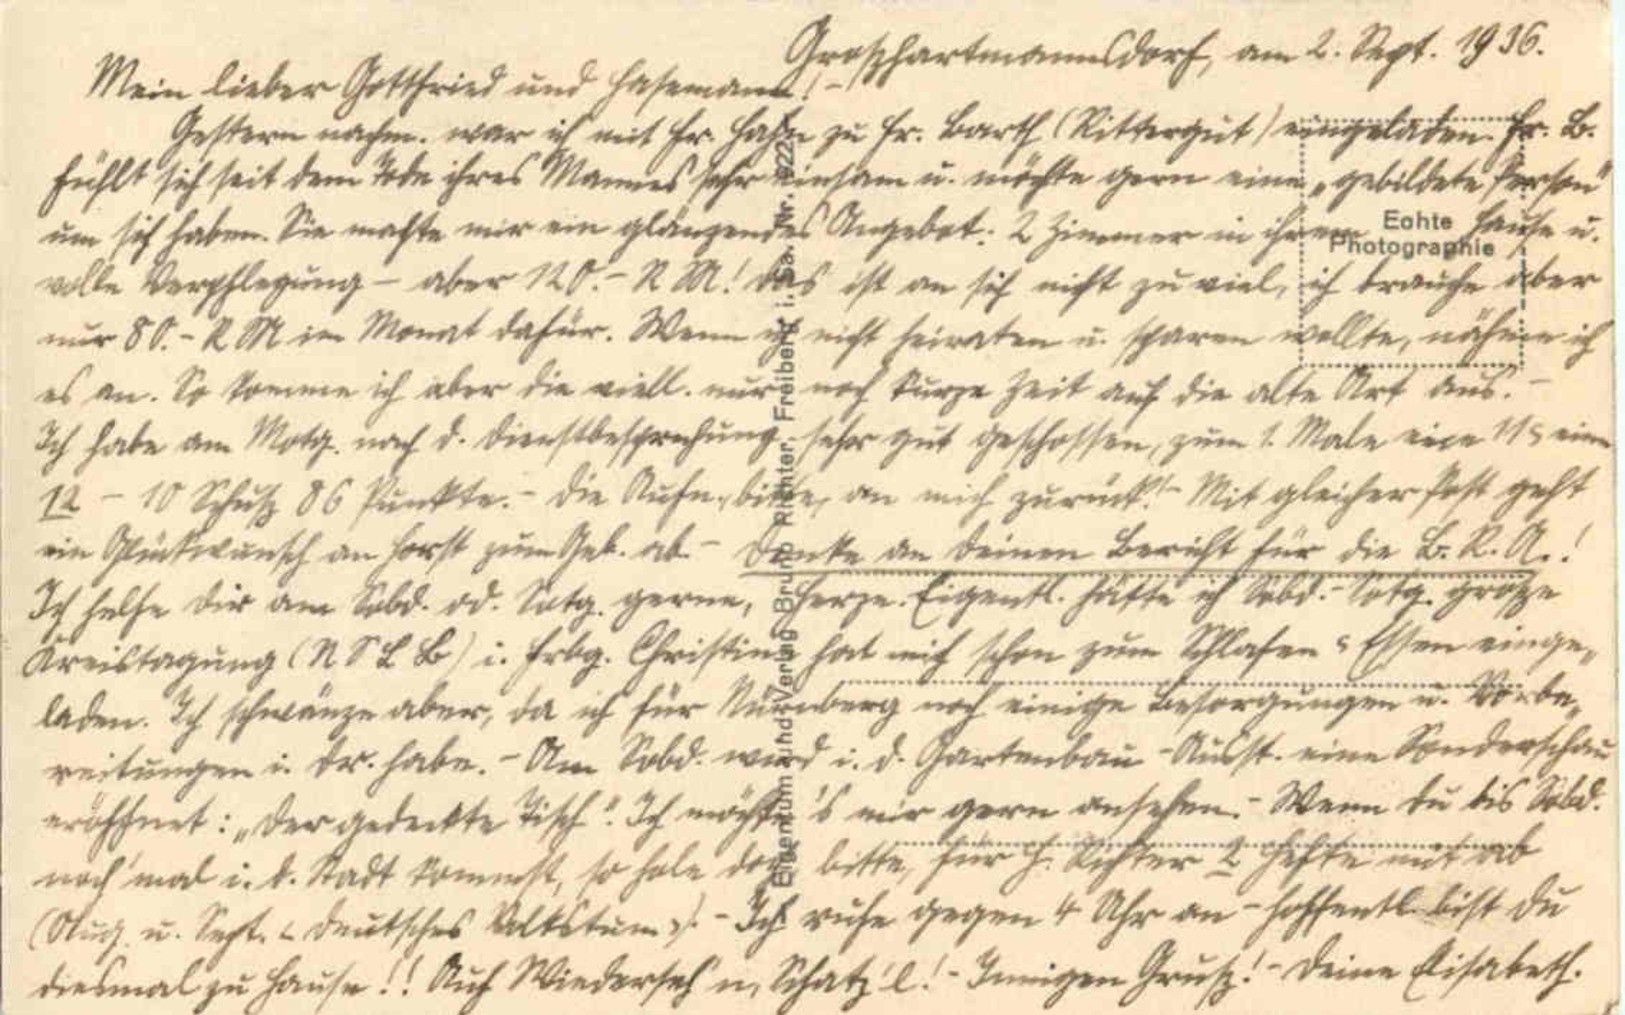 Großhartmannsdorf, am 2. Sept. 1936.
Mein lieber Gottfried und Hasemann! -
Gestern nachm. war ich mit Fr. Hahn zu Fr. Barth (Rittergut) eingeladen. Fr. B.
fühlt sich seit dem Tode ihres Mannes sehr einsam u. möchte gern eine „gebildete Person“
um sich haben. Sie machte mir ein glänzendes Angebot: 2 Zimmer in ihrem Hause u.
volle Verpflegung - aber 120.- RM! Das ist an sich nicht zu viel, ich brauche aber
nur 80.- RM im Monat dafür. Wenn ich nicht heiraten u. sparen wollte, nähme ich
es an. So komme ich aber die viell. nur noch kurze Zeit auf die alte Art aus. -
Ich habe am Motg. nach d. Dienstbesprechung sehr gut geschossen, zum 1. Male eine 11 eine
12 - 10 Schuß 86 Punkte. - Die Aufn. bitte, an mich zurück! - Mit gleicher Post geht
ein Glückwunsch an Horst zum Geb. ab. - Denke an Deinen Bericht für die B. R. A.!
Ich helfe Dir am Sobd. od. Sotg. gerne, Herze. Eigentl. hätte ich Sobd. - Sotg. große
Kreistagung (NSLB) i. Frbg. Christine hat mich schon zum Schlafen Essen einge-
laden. Ich schwänze aber, da ich für Nürnberg noch einige Besorgungen u. Vorbe-
reitungen i. Dr. habe. - Am Sobd. wird i. d. Gartenbau-Ausst. eine Sonderschau
eröffnet: „Der gedeckte Tisch“. Ich möchte's mir gern ansehen. - Wenn Du bis Sobd.
noch 'mal i. d. Stadt kommst, so hole doch bitte, für H. Richter 2 Hefte mit ab
(Aug. u. Sept. „Deutsches Volkstum“). - Ich rufe gegen 4 Uhr an - hoffentl. bist Du
diesmal zu Hause!! Auf Wiederseh'n, Schatz'l! - Innigen Gruß! - Deine Elisabeth.
Echte
Photographie
Eigentum und Verlag Bruno Richter, Freiberg i. Sa. Nr. 922